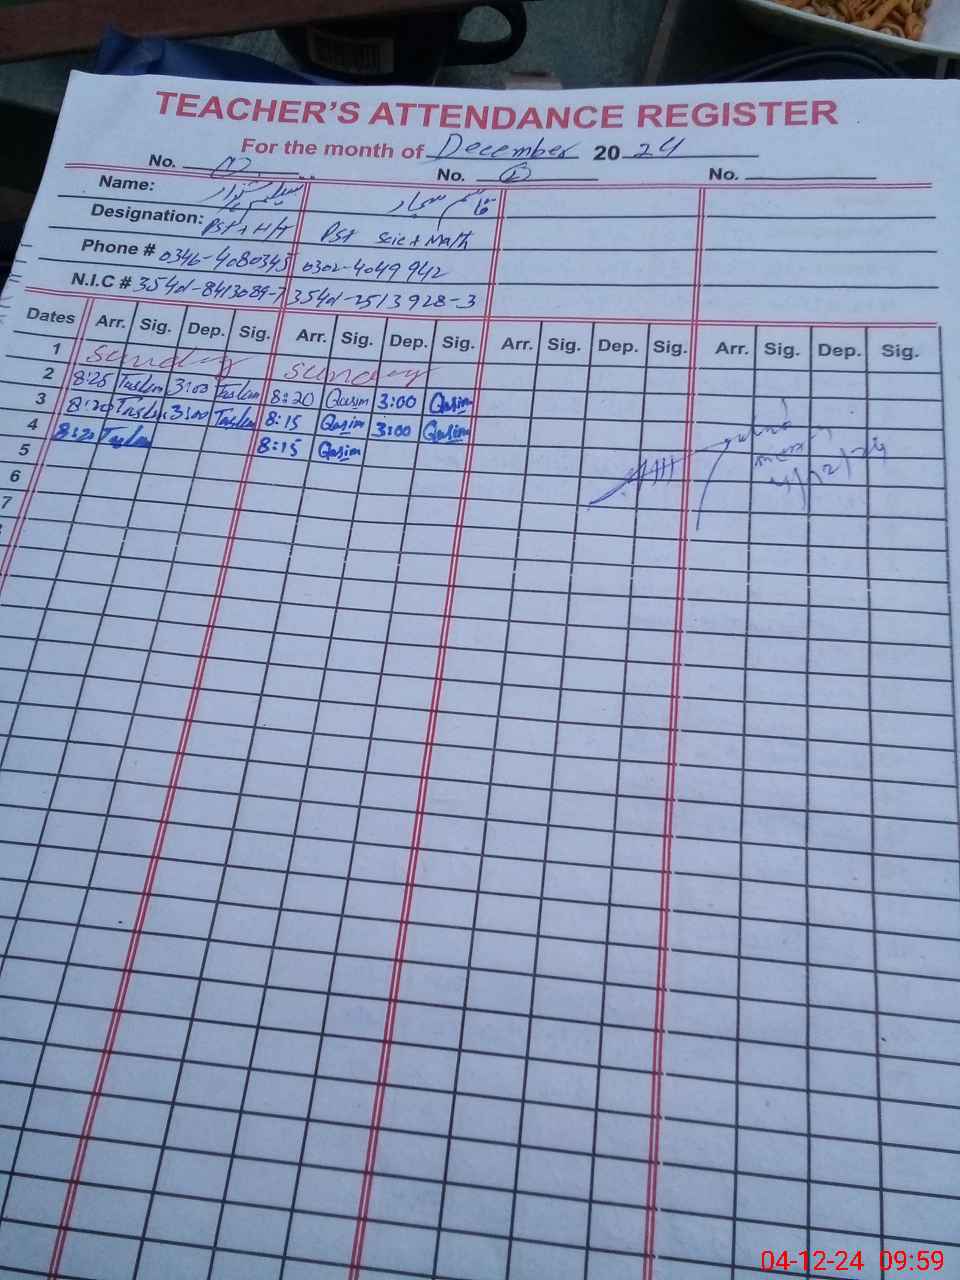 TEACHER'S ATTENDANCE REGISTER
For the month of December 20 24
No. 1 No. 2 No.
Name: قاسم
Designation: PST + H/T PST Scie + Math
Phone # 0346-4080345 0302-4049942
N.I.C # 354d-8413089-7 354d-2513928-3
Dates Arr. Sig. Dep. Sig. Arr. Sig. Dep. Sig. Arr. Sig. Dep. Sig. Arr. Sig. Dep. Sig.
1 Sunday Sunday
2 8:25 Taslim 3:00 Taslim 8:20 Qasim 3:00 Qasim
3 8:20 Taslim 3:00 Taslim 8:15 Qasim 3:00 Qasim
4 8:20 Taslim 8:15 Qasim
5
6
7
4/12/24
04-12-24 09:59